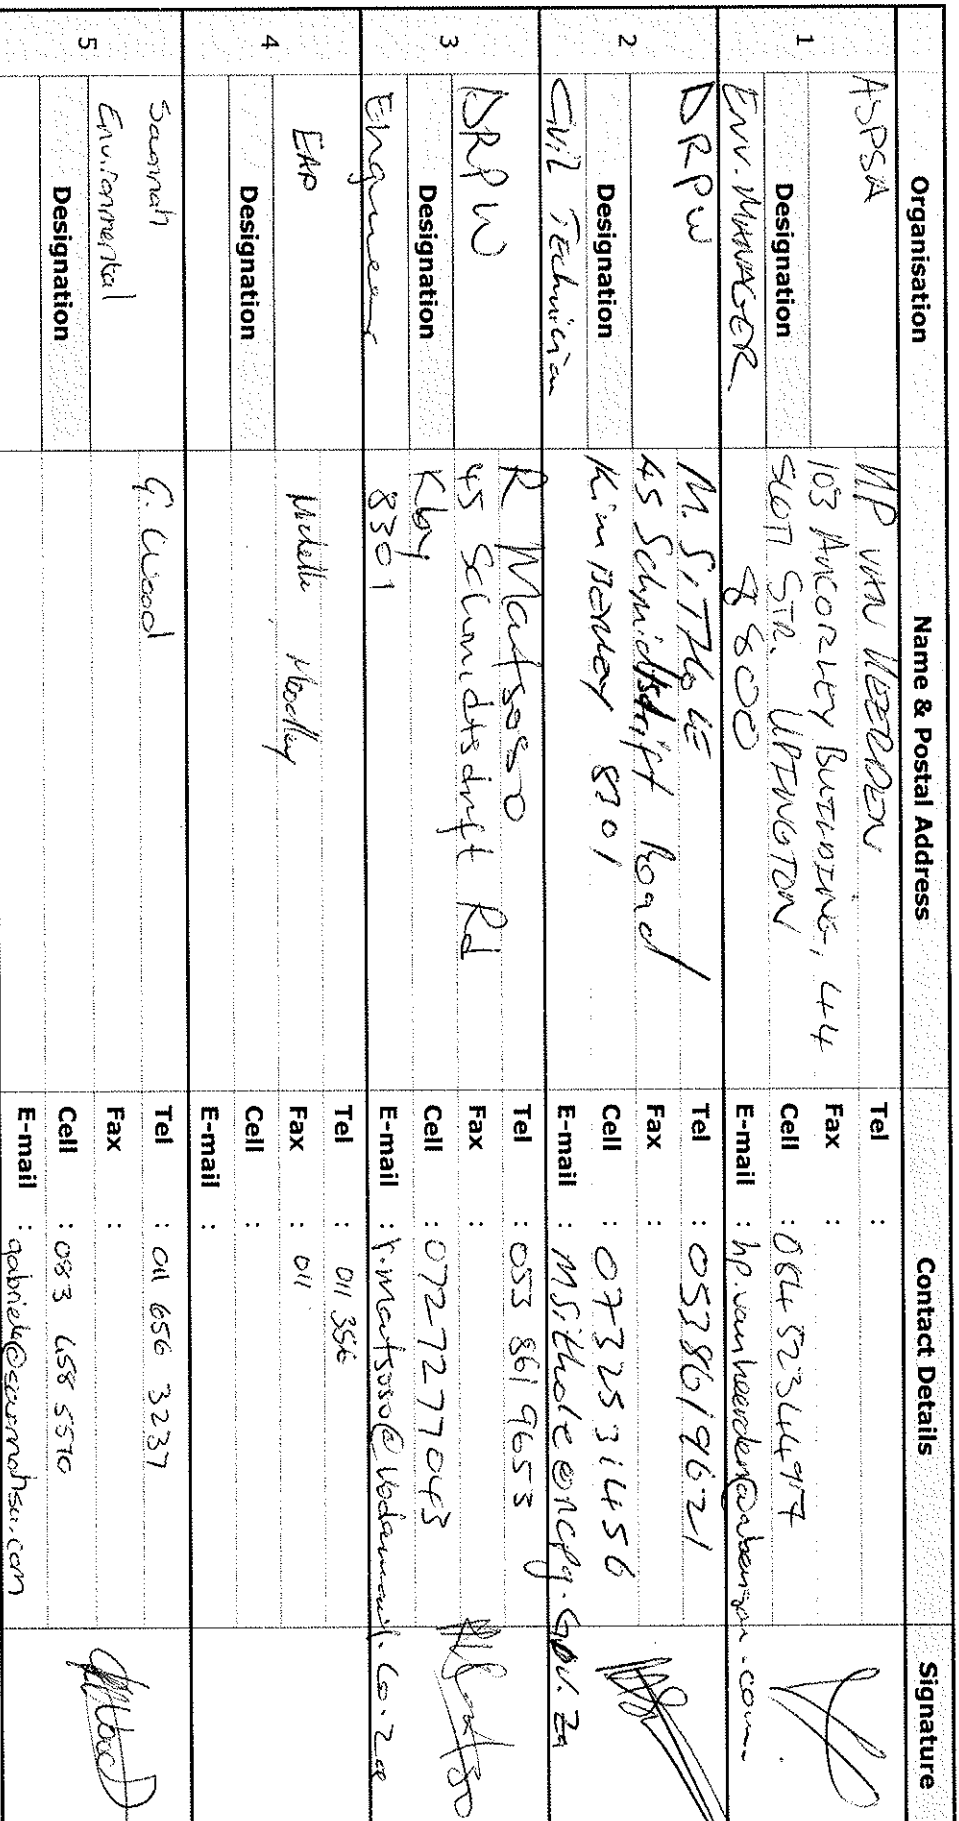 Organisation
Name & Postal Address
Contact Details
Signature
1
ASPSA
Designation
Env. MANAGER
HP VAN HEERDEN
103 ANCORLEY BUILDING, 44
SCOTT STR. UPINGTON
8800
Tel :
Fax :
Cell : 0645234497
E-mail :
2
DRPW
Designation
Civil Technician
M. SITHOLE
45 Schmidtsdrift Road
Kimberley 8301
Tel : 0538619621
Fax :
Cell : 0732531456
E-mail : MSithole@ncpg.gov.za
3
DRPW
Designation
Engineer
R Matsoso
45 Schmidtsdrift Rd
Kby
8301
Tel : 053 861 9653
Fax :
Cell : 0727277043
E-mail : r.matsoso@vodamail.co.za
4
EAP
Designation
Michelle Moodley
Tel : 011 356
Fax : 011
Cell :
E-mail :
5
Savannah
Environmental
Designation
G. Wood
Tel : 011 656 3237
Fax :
Cell : 083 658 5570
E-mail : gabriele@savannahsa.com